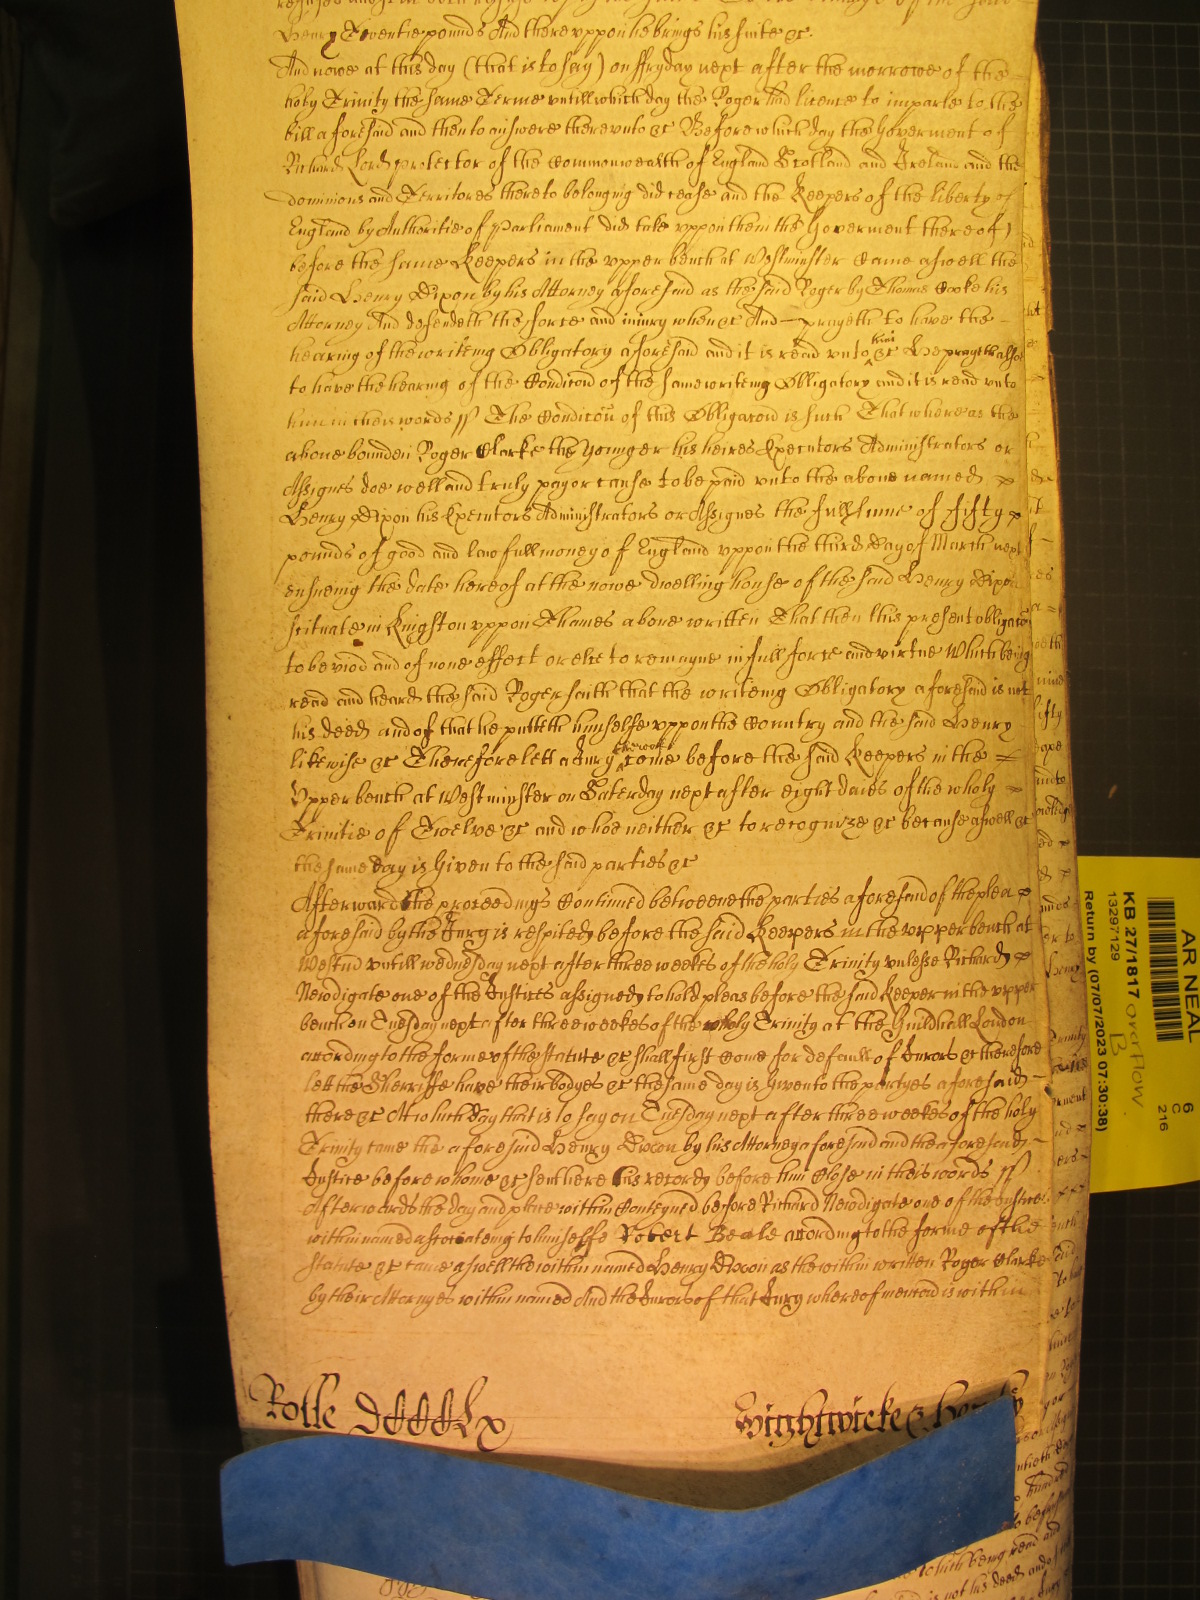 Henry Twentie pounds And there vppon he brings his suite &c.
And nowe at this day (that is to say) on ffryday next after the morrowe of the
holy Trinity the same Terme vntill which day the Roger had licence to imparle to the
bill aforesaid and then to answere therevnto &c Before which day the Goverment of
Richard Lord protector of the Commonwealth of England Scotland and Ireland and the
dominions and Territores thereto belonging did cease and the Keepers of the liberty of
England by Authoritie of Parliament did take vppon them the Goverment thereof)
before the same Keepers in the vpper bench at Westminster Came aswell the
said Henry Dixon by his Attorney aforesaid as the said Roger by Thomas Cooke his
Attorney And defendeth the force and iniury when &c And prayeth to have the
hearing of the writeing Obligatory aforesaid and it is read vnto him &c He prayeth also
to have the hearing of the Condicon of the same writeing Obligatory and it is read vnto
him in theis words ss The Condicon of this Obligacon is such That whereas the
above bounden Roger Clarke the Younger his heires Executors Administrators or
Assignes doe well and truly pay or cause to be paid vnto the above named
Henry Dixon his Executors Administrators or Assignes the full sume of fifty
pounds of good and lawfull money of England vppon the third day of March next
ensueing the date hereof at the nowe dwelling house of the said Henry Dixon
scituate in Kingston vppon Thames above written That then this present obligacon
to be viod and of none effect or else to remayne in full force and virtue Which being
read and heard the said Roger saith that the writeing Obligatory aforesaid is not
his deed and of that he putteth himselfe vppon the Country and the said Henry
likewise &c Therefore lett a Iury thereof come before the said Keepers in the
Vpper bench at Westminster on Saturday next after eight daies of the wholy
Trinitie of Twelve &c and whoe neither &c to recognize &c because aswell &c
the same day is Given to the said parties &c
Afterward the proceedings Continued betweene the parties aforesaid of the plea
aforesaid by the Iury is respited before the said Keepers in the vpper bench at
Westm vntill wednesday next after three weekes of the holy Trinity vnlesse Richard
Newdigate one of the Iustices assigned to hold pleas before the said Keeper in the vpper
bench on Tuesday next after three weekes of the wholy Trinity at the Guildhall London
according to the forme of the statute &c shall first Come for default of Iurors &c therefore
lett the Sherriffe have their bodyes &c the same day is Given to the partyes aforesaid
there &c At which day that is to say on Tuesday next after three weekes of the holy
Trinity came the aforesaid Henry Dixon by his Attorney aforesaid and the aforesaid
Iustice before whome &c sent here his record before him Close in theis words ss
Afterwards the day and place within Conteyned before Richard Newdigate one of the Iustices
within named associateing to himselfe Robert Beale according to the forme of the
statute &c came aswell the within named Henry Dixon as the within written Roger Clarke
by their Attorneyes within named And the Iurors of that Iury whereof mencon is within
Rolle
Wightwicke &
AR NEAL
6
C
216
KB 27/1817 overflow
B
13297129
Return by (07/07/2023 07:30:38)